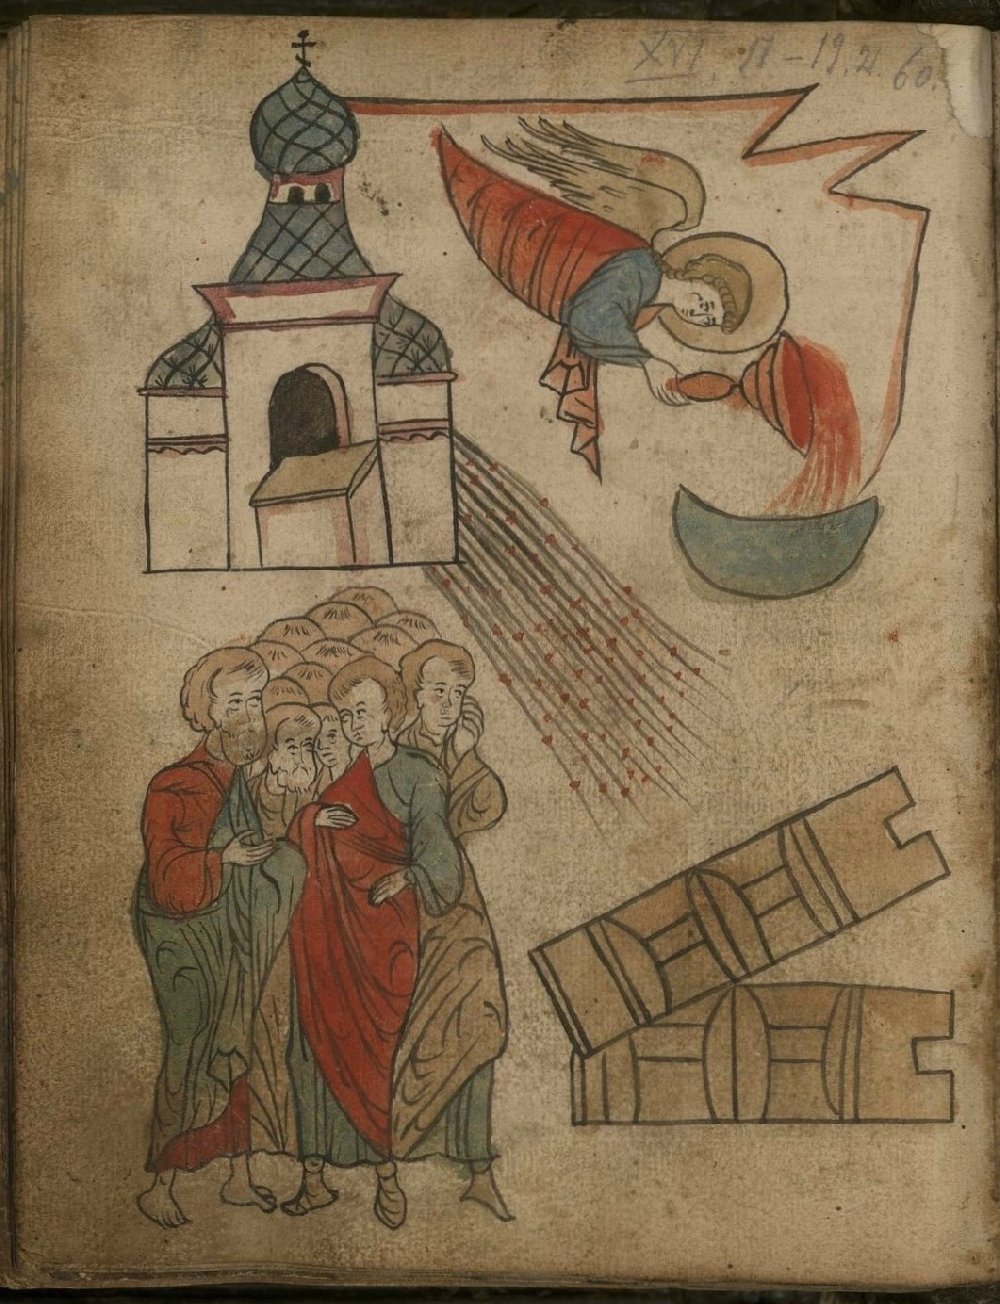 XVI, 17 – 19, 21. 60.